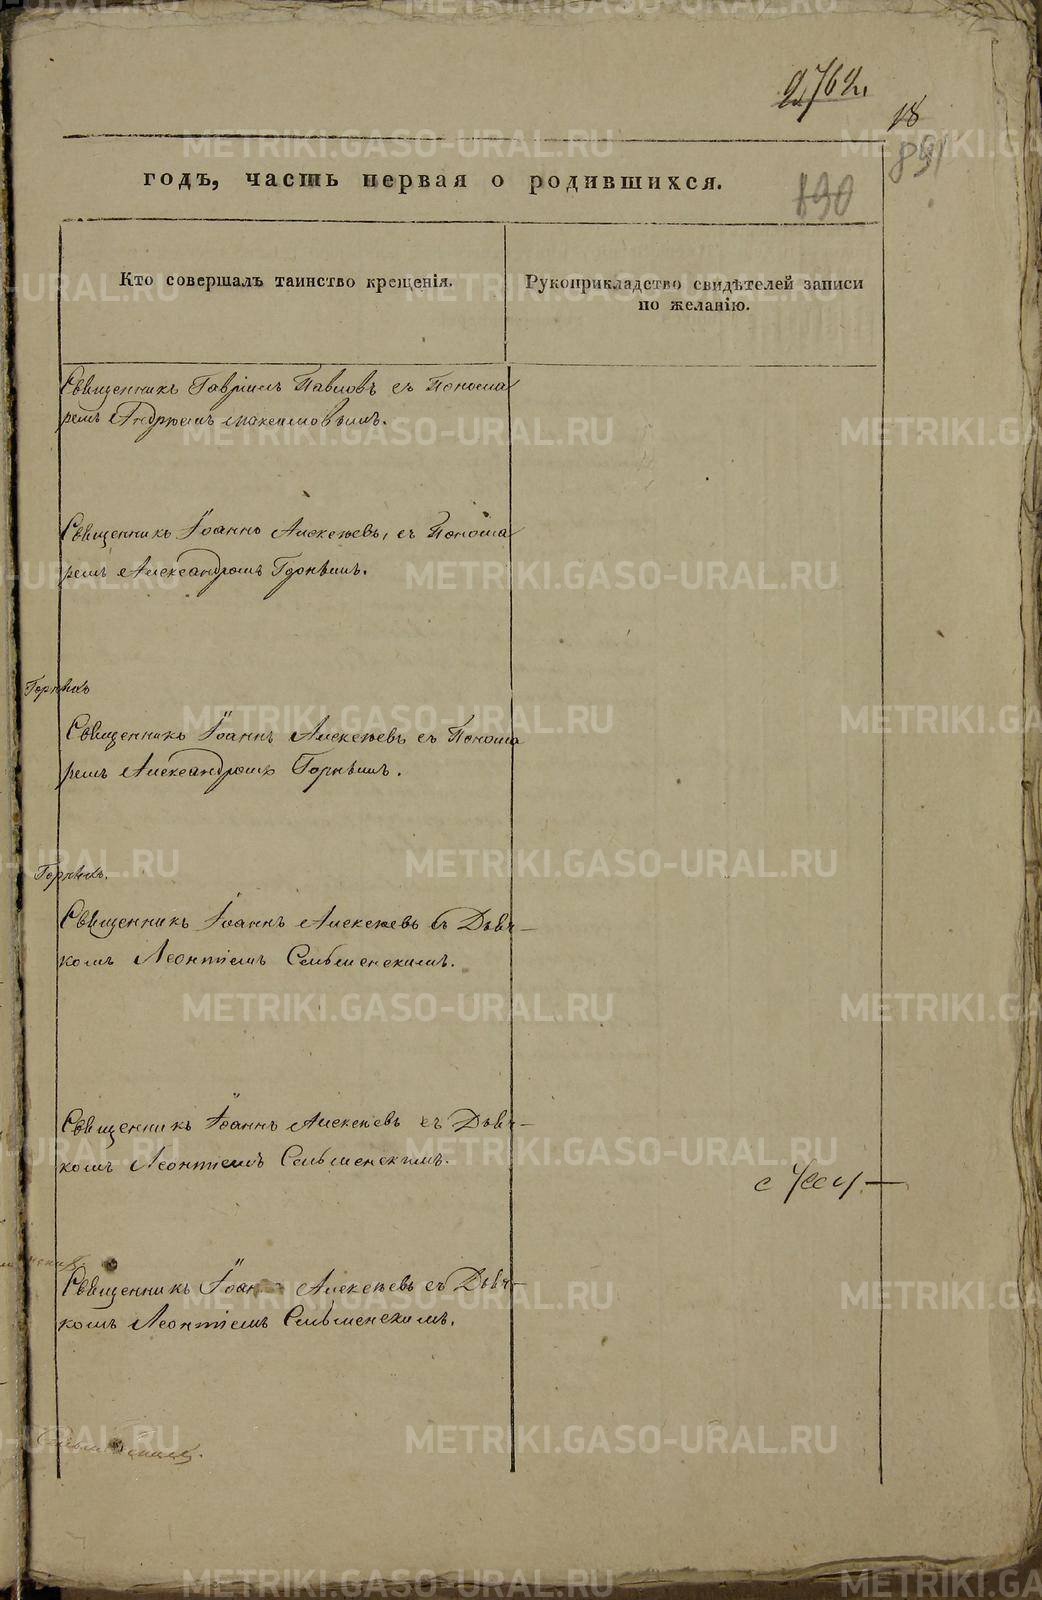 2762
18
891
годъ, часть первая о родившихся.
890
Кто совершалъ таинство крещенія.
Рукоприкладство свидѣтелей записи
по желанію.
Священникъ Гавріилъ Павловъ съ Понома
ремъ Андреемъ Максимовымъ.
Священникъ Іоаннъ Алексѣевъ, съ Понома
ремъ Александромъ Горнымъ.
Священникъ Іоаннъ Алексѣевъ съ Понома
ремъ Александромъ Горнымъ.
Священникъ Іоаннъ Алексѣевъ съ Дьяч-
комъ Леонтіемъ
Священникъ Іоаннъ Алексѣевъ съ Дьяч-
комъ Леонтіемъ
Священникъ Іоаннъ Алексѣевъ съ Дьяч-
комъ Леонтіемъ
METRIKI.GASO-URAL.RU